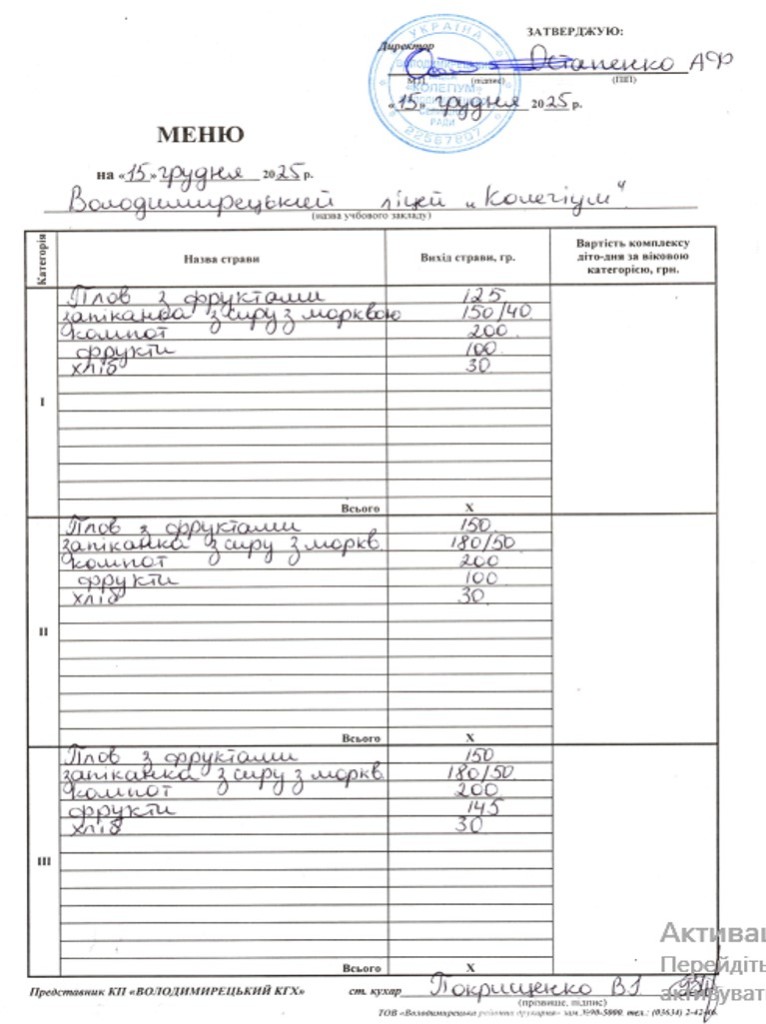 ЗАТВЕРДЖУЮ:
Директор
Остапенко АФ
М.П. (підпис) (ПІП)
«15» грудня 2025 р.
УКРАЇНА
«КОЛЕГІУМ»
РАДИ
22567807
МЕНЮ
на «15» грудня 2025 р.
Володимирецький ліцей „Колегіум"
(назва учбового закладу)
Категорія Назва страви Вихід страви, гр. Вартість комплексу діто-дня за віковою категорією, грн.
I
Плов з фруктами 125
запіканка з сиру з морквою 150/40
компот 200
фрукти 100
хліб 30
Всього X
II
Плов з фруктами 150
запіканка з сиру з моркв. 180/50
компот 200
фрукти 100
хліб 30
Всього X
III
Плов з фруктами 150
запіканка з сиру з моркв. 180/50
компот 200
фрукти 145
хліб 30
Всього X
Представник КП «ВОЛОДИМИРЕЦЬКИЙ КГХ» ст. кухар Покрищенко ВІ
(прозвище, підпис)
ТОВ «Володимирецька районна друкарня» зам.№90-5000. тел.: (03634) 2-42-06.
Активац
Перейдіть
активуват